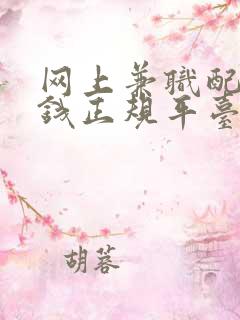 网上兼職配
钱正規平臺
胡蓉